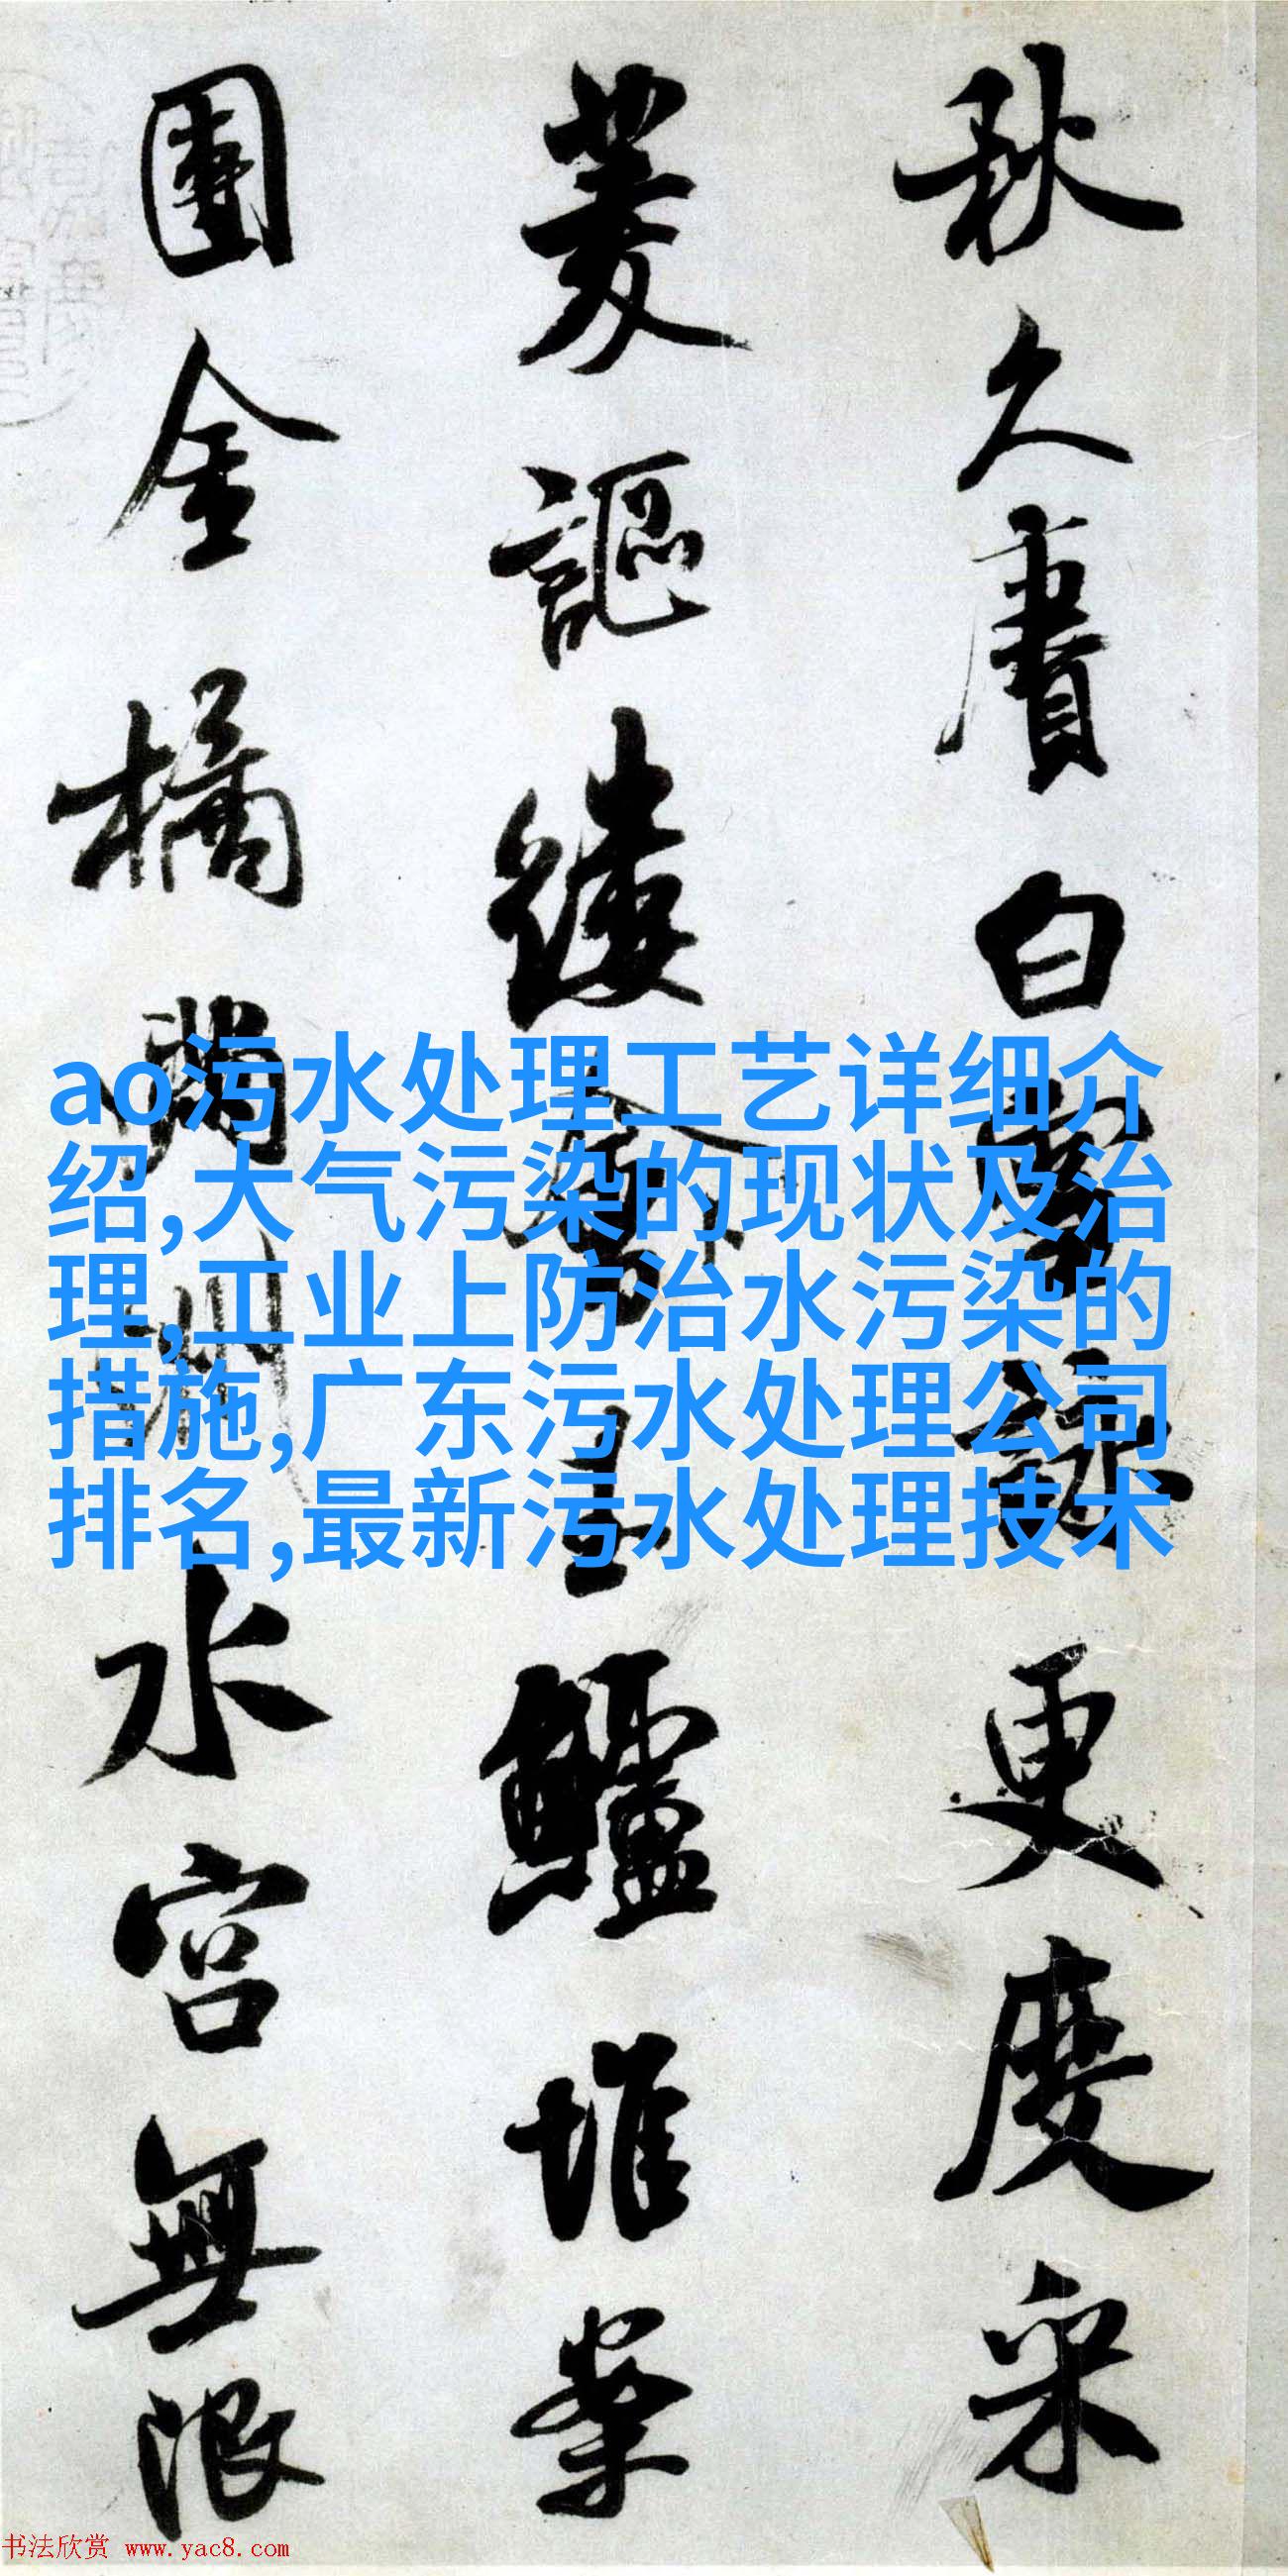 秋久賡白雪詠更度采
菱謳縷會玉鱸堆案
團金橘滿洲水宮無限
ao污水处理工艺详细介
绍,大气污染的现状及治
理,工业上防治水污染的
措施,广东污水处理公司
排名,最新污水处理技术
书法欣赏 www.yac8.com